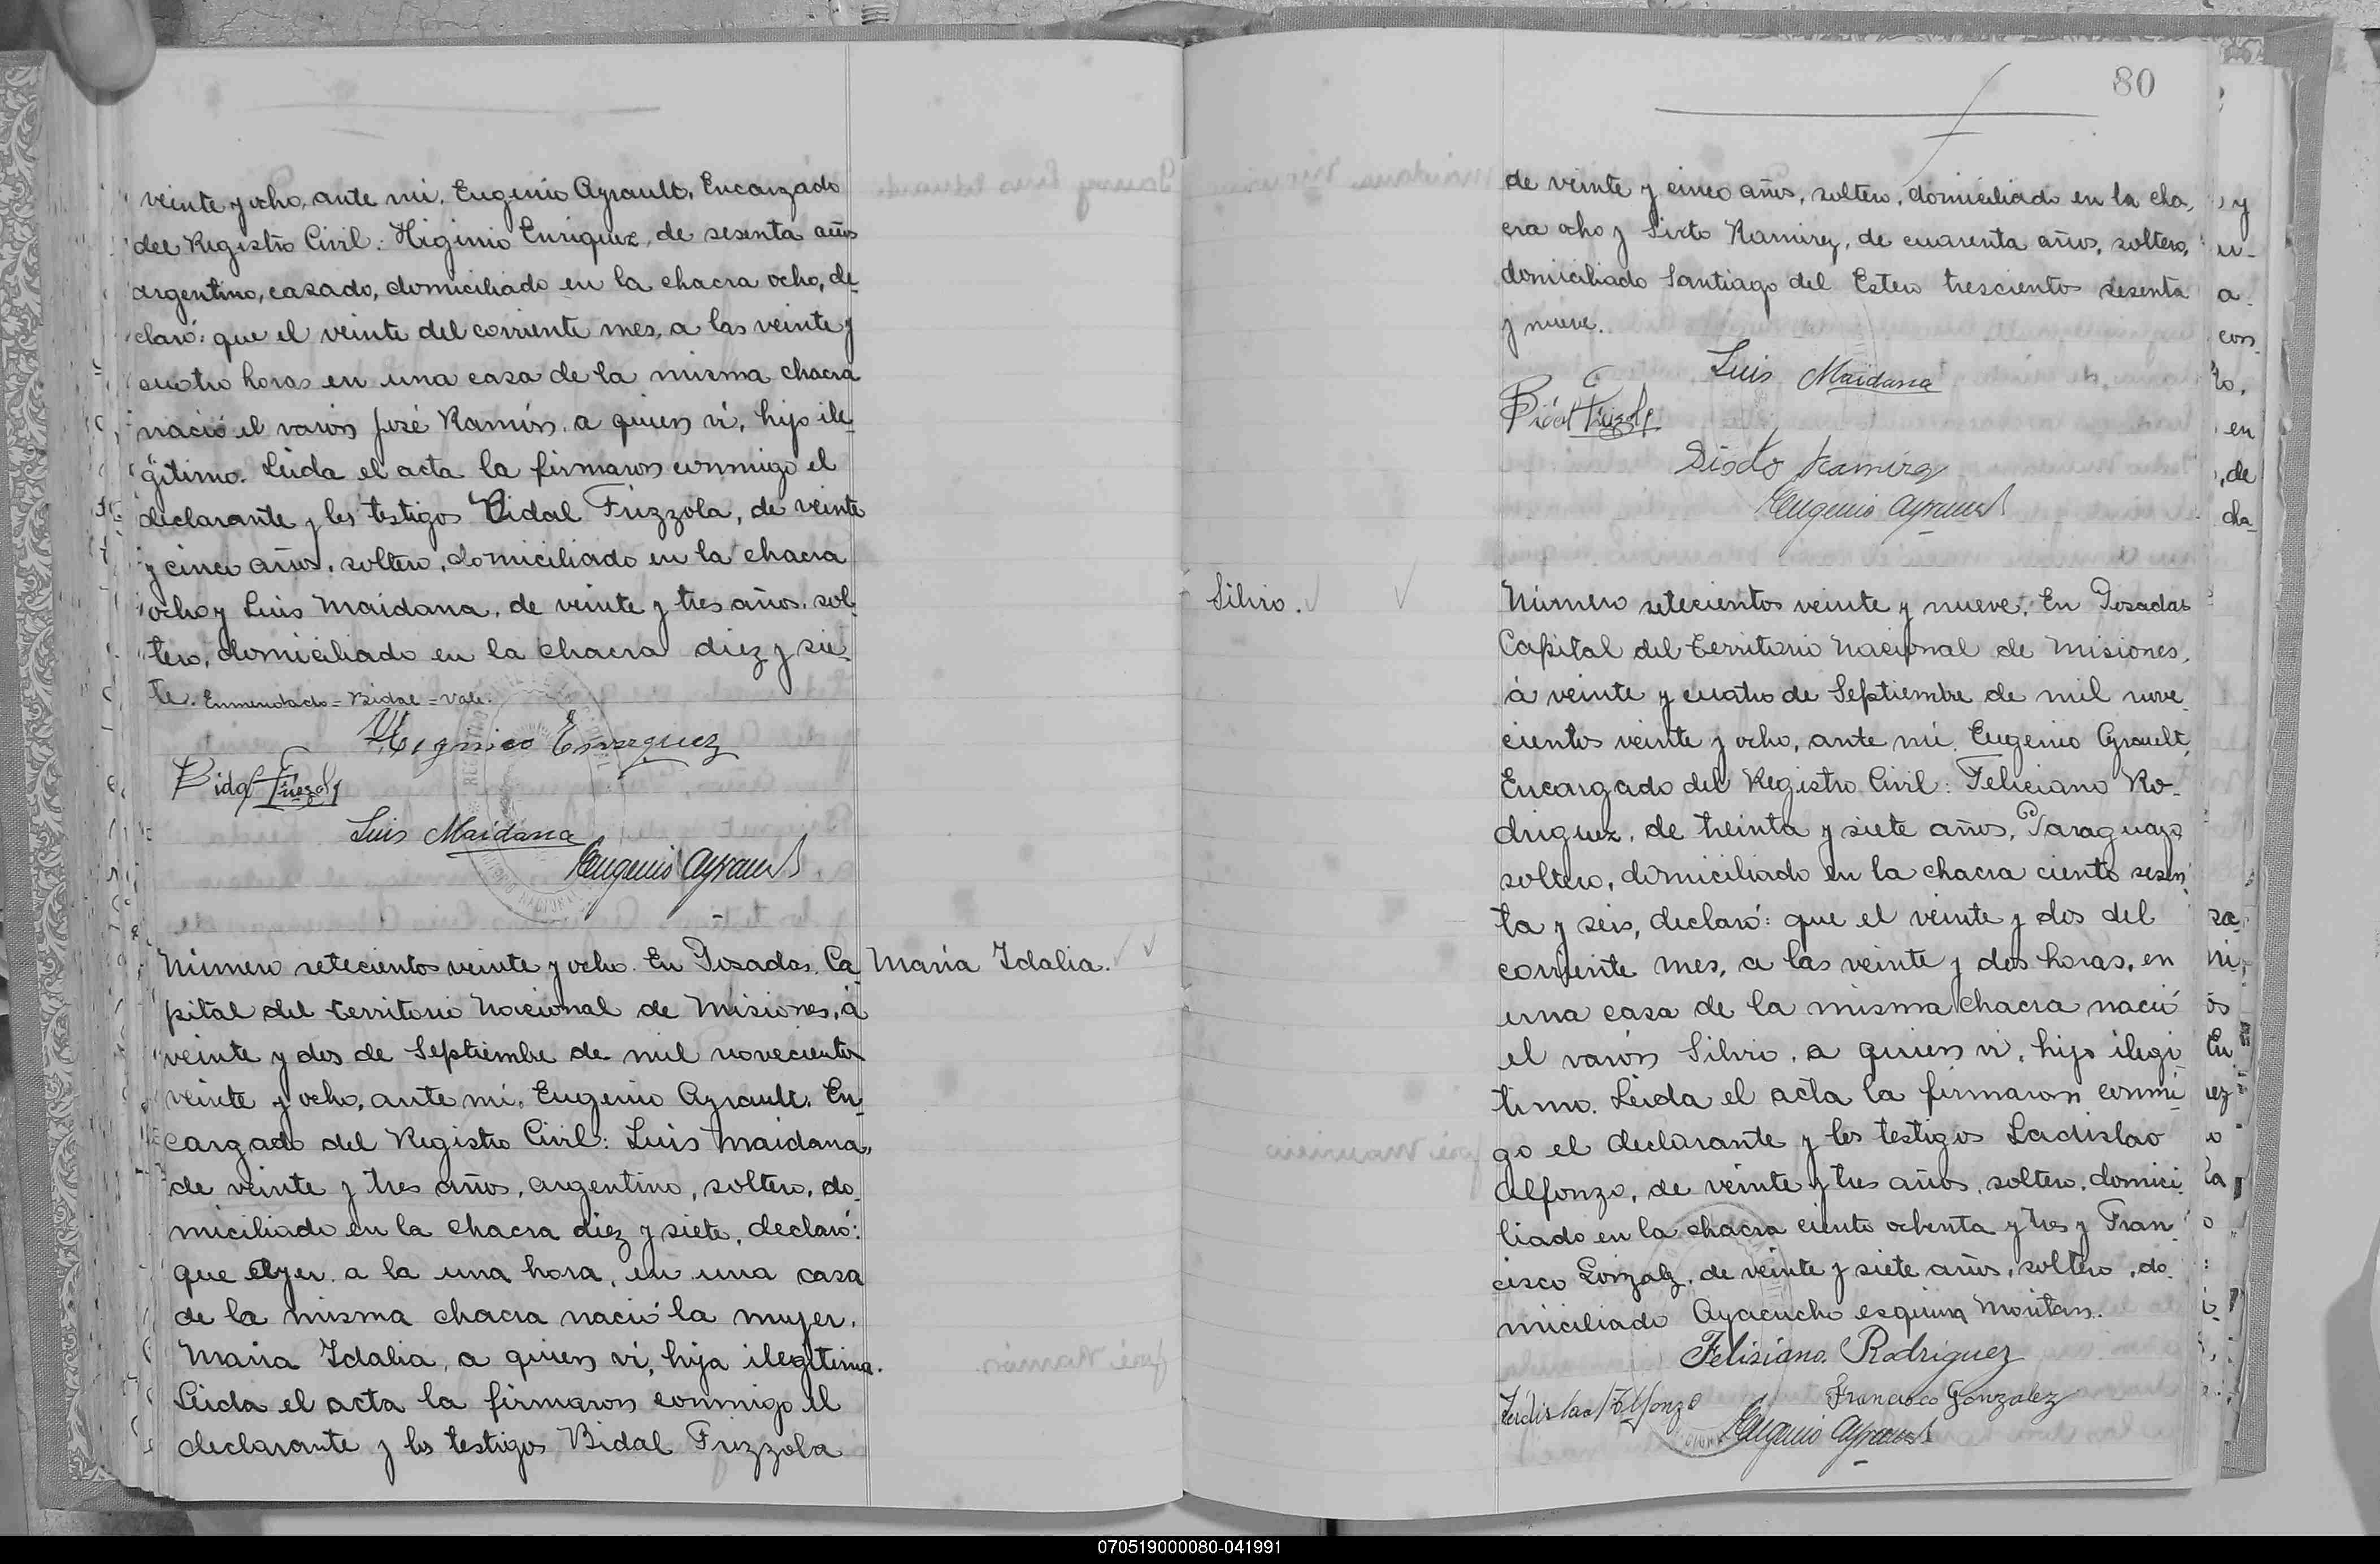 veinte y ocho, ante mi, Eugenio Ayrault, Encargado
del Registro Civil: Higinio Enriquez, de sesenta años
argentino, casado, domiciliado en la chacra ocho, de
claró: que el veinte del corriente mes, a las veinte y
cuatro horas en una casa de la misma chacra
nació el varón José Ramón, a quien vi, hijo ile
gítimo. Leida el acta la firmaron conmigo el
declarante y los testigos Bidal Frizzola, de veinte
y cinco años, soltero, domiciliado en la chacra
ocho y Luis Maidana, de veinte y tres años, sol
tero, domiciliado en la chacra diez y sie
te. Enmendado = Bidal = Vale.
Higinico Enrequez
Bidal
Luis Maidana
Eugenio Ayrault
Número setecientos veinte y ocho. En Posadas, Ca
María Idalia.
pital del territorio Nacional de Misiones, á
veinte y dos de Septiembre de mil novecientos
veinte y ocho, ante mi, Eugenio Ayrault, En
cargado del Registro Civil: Luis Maidana,
de veinte y tres años, argentino, soltero, do
miciliado en la chacra diez y siete, declaró:
que ayer a la una hora, en una casa
de la misma chacra nació la mujer,
María Idalia, a quien vi, hija ilegítima.
Leida el acta la firmaron conmigo el
declarante y los testigos Bidal Frizzola
80
de veinte y cinco años, soltero, domiciliado en la cha,
cra ocho y Sixto Ramirez, de cuarenta años, soltero,
domiciliado Santiago del Estero trescientos sesenta
y nueve.
Luis Maidana
Bidal
Sisto Ramirez
Eugenio Ayrault
Silvio.
Número setecientos veinte y nueve. En Posadas
Capital del territorio Nacional de Misiones,
á veinte y cuatro de Septiembre de mil nove
cientos veinte y ocho, ante mi, Eugenio Ayrault,
Encargado del Registro Civil: Feliciano Ro-
driguez, de treinta y siete años, Paraguayo
soltero, domiciliado en la chacra ciento sesen
ta y seis, declaró: que el veinte y dos del
corriente mes, a las veinte y dos horas, en
una casa de la misma chacra nació
el varón Silvio, a quien vi, hijo ilegi
timo. Leida el acta la firmaron conmi
go el declarante y los testigos Ladislao
Alfonzo, de veinte y tres años, soltero, domici
liado en la chacra ciento ochenta y tres y Fran
cisco Gonzalz, de veinte y siete años, soltero, do
miciliado Ayacucho esquina
Felisiano Rodriguez
Ladislao Alfonzo
Francisco Gonzalez
Eugenio Ayrault
070519000080-041991